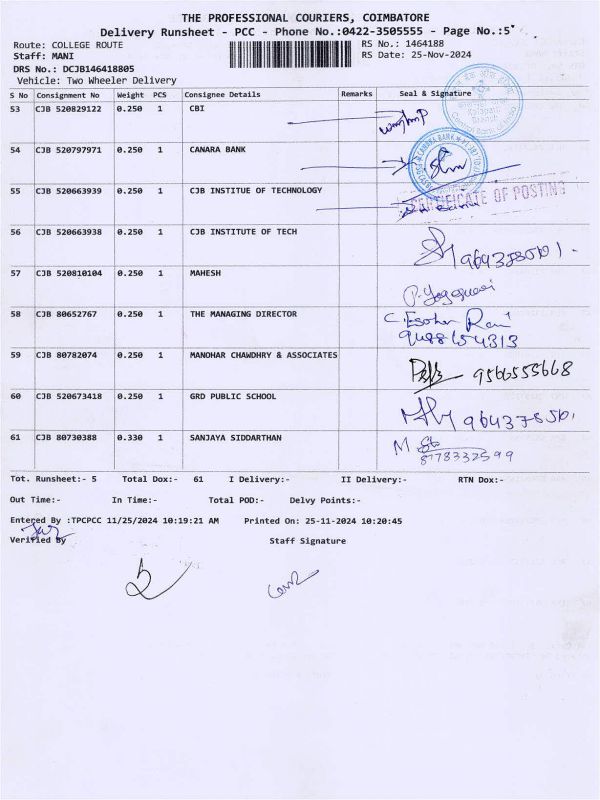 THE PROFESSIONAL COURIERS, COIMBATORE
Delivery Runsheet - PCC - Phone No.:0422-3505555 - Page No.:5
Route: COLLEGE ROUTE RS No.: 1464188
Staff: MANI RS Date: 25-Nov-2024
DRS No.: DCJB146418805
Vehicle: Two Wheeler Delivery
S No Consignment No Weight PCS Consignee Details Remarks Seal & Signature
53 CJB 520829122 0.250 1 CBI
54 CJB 520797971 0.250 1 CANARA BANK
55 CJB 520663939 0.250 1 CJB INSTITUE OF TECHNOLOGY CERTIFICATE OF POSTING
56 CJB 520663938 0.250 1 CJB INSTITUTE OF TECH
57 CJB 520810104 0.250 1 MAHESH
58 CJB 80652767 0.250 1 THE MANAGING DIRECTOR
59 CJB 80782074 0.250 1 MANOHAR CHAWDHRY & ASSOCIATES 9566555668
60 CJB 520673418 0.250 1 GRD PUBLIC SCHOOL
61 CJB 80730388 0.330 1 SANJAYA SIDDARTHAN 8778332599
Tot. Runsheet:- 5 Total Dox:- 61 I Delivery:- II Delivery:- RTN Dox:-
Out Time:- In Time:- Total POD:- Delvy Points:-
Entered By :TPCPCC 11/25/2024 10:19:21 AM Printed On: 25-11-2024 10:20:45
Verified By Staff Signature